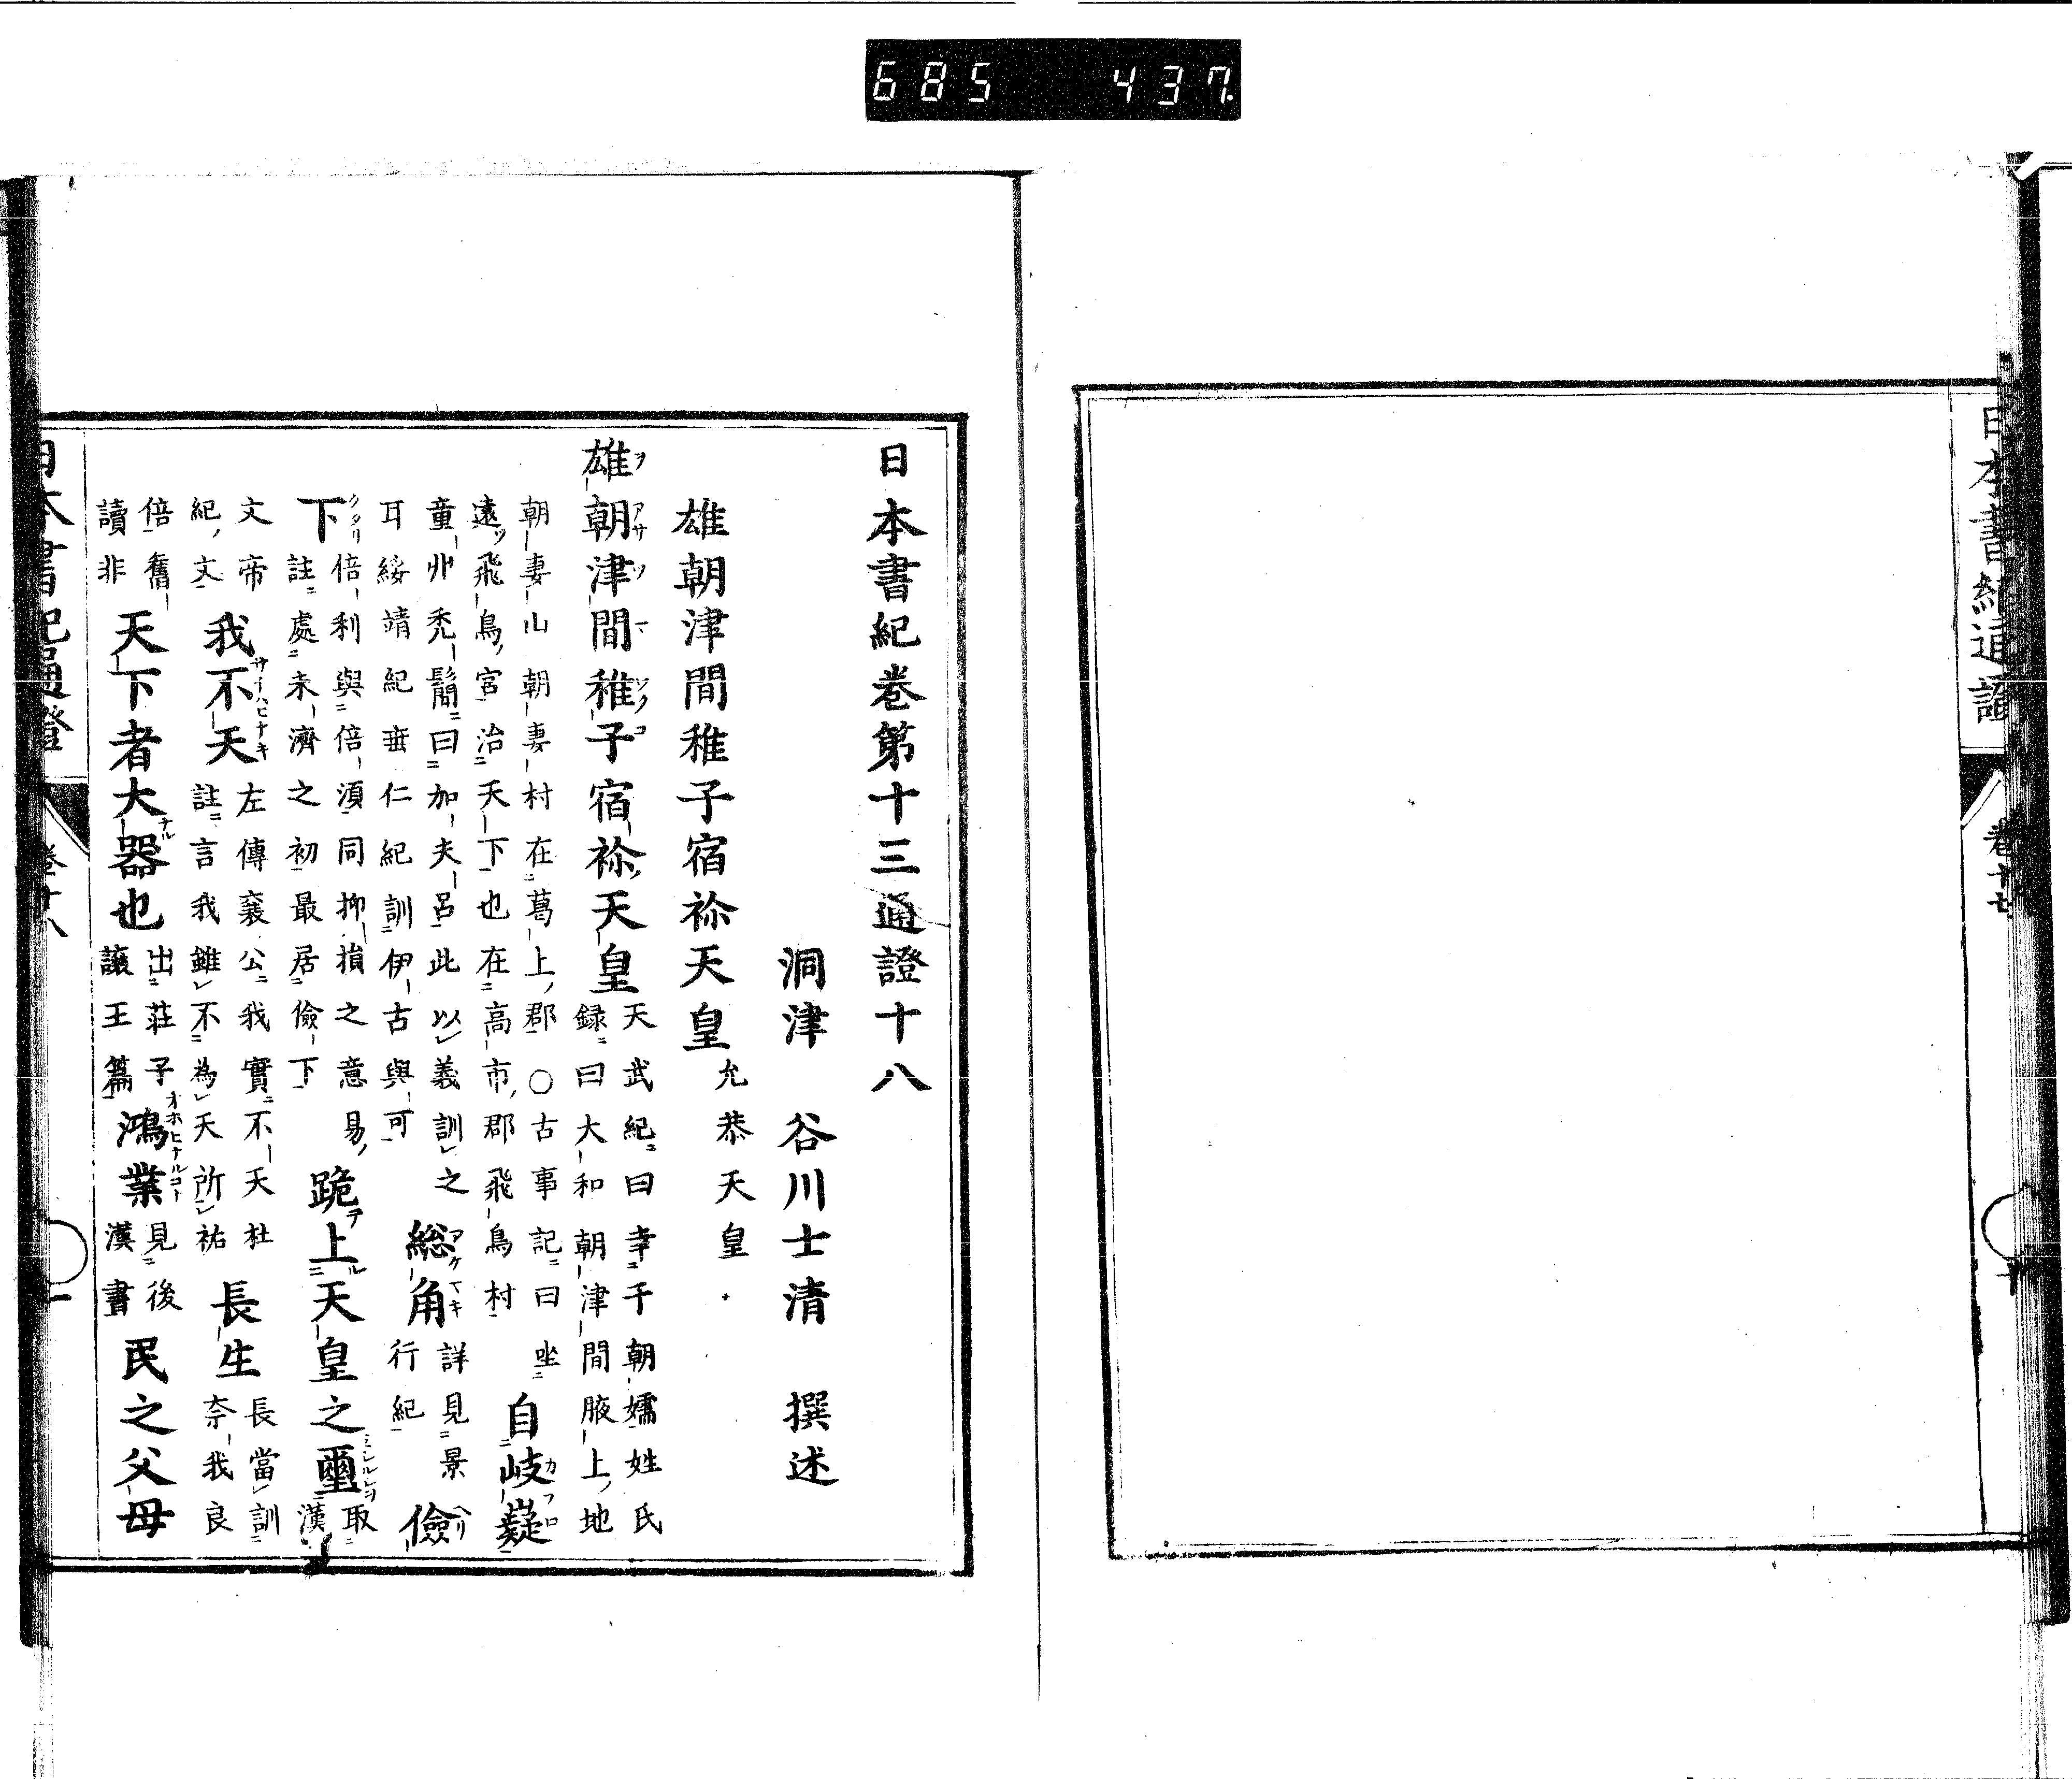 685 437
日本書紀通證 卷十七
日本書紀卷第十三通證十八
洞津 谷川士清 撰述
雄朝津間稚子宿祢天皇 允恭天皇
雄朝津間稚子宿祢天皇 天武紀曰幸于朝嬬姓氏
録曰大和朝津間腋上地
朝妻山朝妻村在葛上郡○古事記曰坐
遠飛鳥宮治天下也在高市郡飛鳥村 自岐嶷
童丱禿鬜曰加夫呂此以義訓之
耳綏靖紀垂仁紀訓伊古與可 総角 詳見景
行紀 儉
下 倍利與倍湏同抑損之意易
註處未濟之初最居儉下 跪上天皇之璽 取
漢
文帝
紀文 我不天 左傳襄公我實不天杜
註言我雖不為天所祐 長生 長當訓
奈我良
倍舊
讀非 天下者大器也 出莊子
讓王篇 鴻業 見後
漢書 民之父母
日本書紀通證 卷十八 一